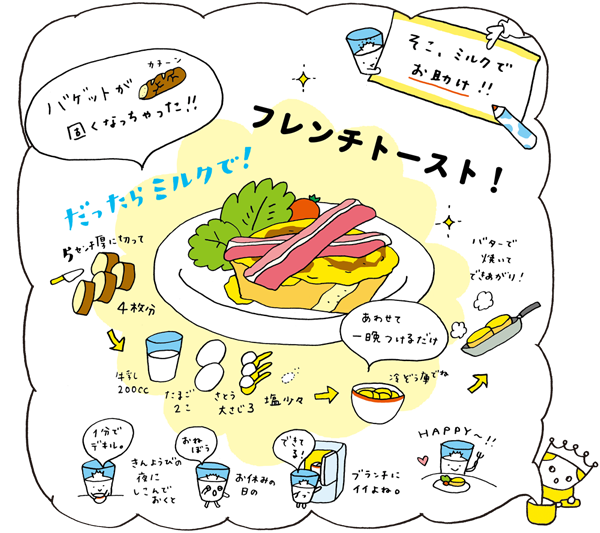 そこ、ミルクで
お助け!!
カチーン
バゲットが
固くなっちゃった!!
フレンチトースト!
だったらミルクで!
5センチ厚に切って
4枚分
牛乳
200cc
たまご
2こ
さとう
大さじ3
塩少々
あわせて
一晩つけるだけ
冷ぞう庫でね
バターで
焼いて
できあがり!
1分で
デキル。
きんようびの
夜に
しこんで
おくと
おね
ぼう
お休みの
日の
できて
る!
ブランチに
イイよね。
HAPPY〜!!